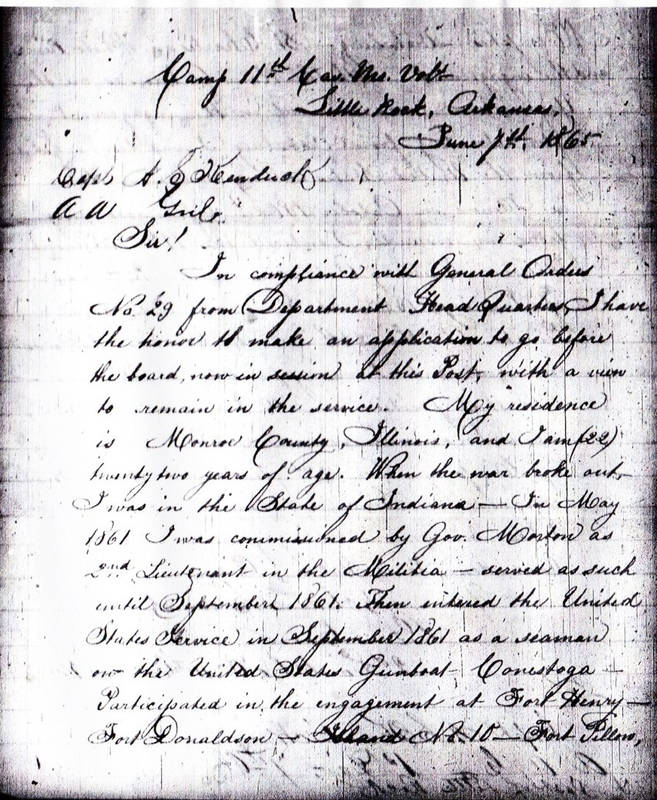 Camp 11th Cav. Mo. Volt
Little Rock, Arkansas,
June 7th. 1865
Capt A. J. Kendrick
A A Genl.
Sir!
In compliance with General Orders
No. 29 from Department Head Quarters, I have
the honor to make an application to go before
the board, now in session at this Post, with a view
to remain in the service. My residence
is Monroe County, Illinois, and I am (22)
twenty two years of age. When the war broke out,
I was in the State of Indiana — In May
1861 I was commissioned by Gov. Morton as
2nd Lieutenant in the Militia — served as such
until September 1861. Then entered the United
States Service in September 1861 as a seaman
on the United States Gunboat Conestoga —
Participated in the engagement at Fort Henry —
Fort Donaldson — Island No. 10 — Fort Pillow,